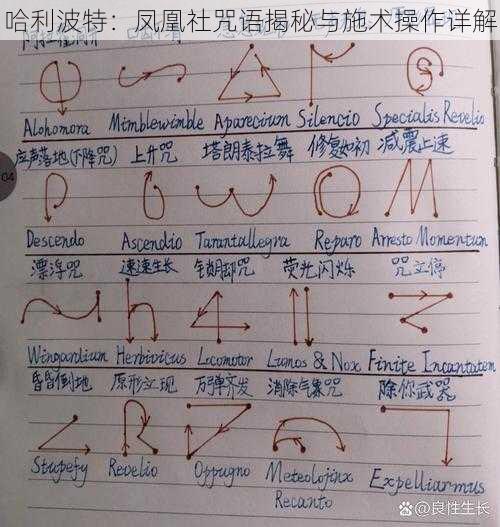 哈利波特：凤凰社咒语揭秘与施术操作详解
Alohomora Mimblewimble Aparecium Silencio Specialis Revelio
应声落地(下降咒) 上升咒 塔朗泰拉舞 修复如初 减震止速
04
Descendo Ascendio Tarantallegra Reparo Arresto Momentum
漂浮咒 速速生长 锁腿咒 荧光闪烁 咒立停
Wingardium Herbivicus Locomotor Lumos & Nox Finite Incantatem
昏昏倒地 原形立现 万弹齐发 消除气象咒 除你武器
Stupefy Revelio Oppugno Meteolojinx Recanto Expelliarmus
良性生长